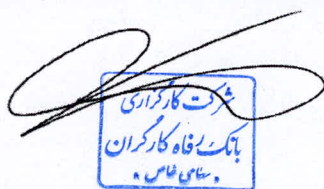 شرکت کارگزاری
بانک رفاه کارگران
• سهامی خاص •